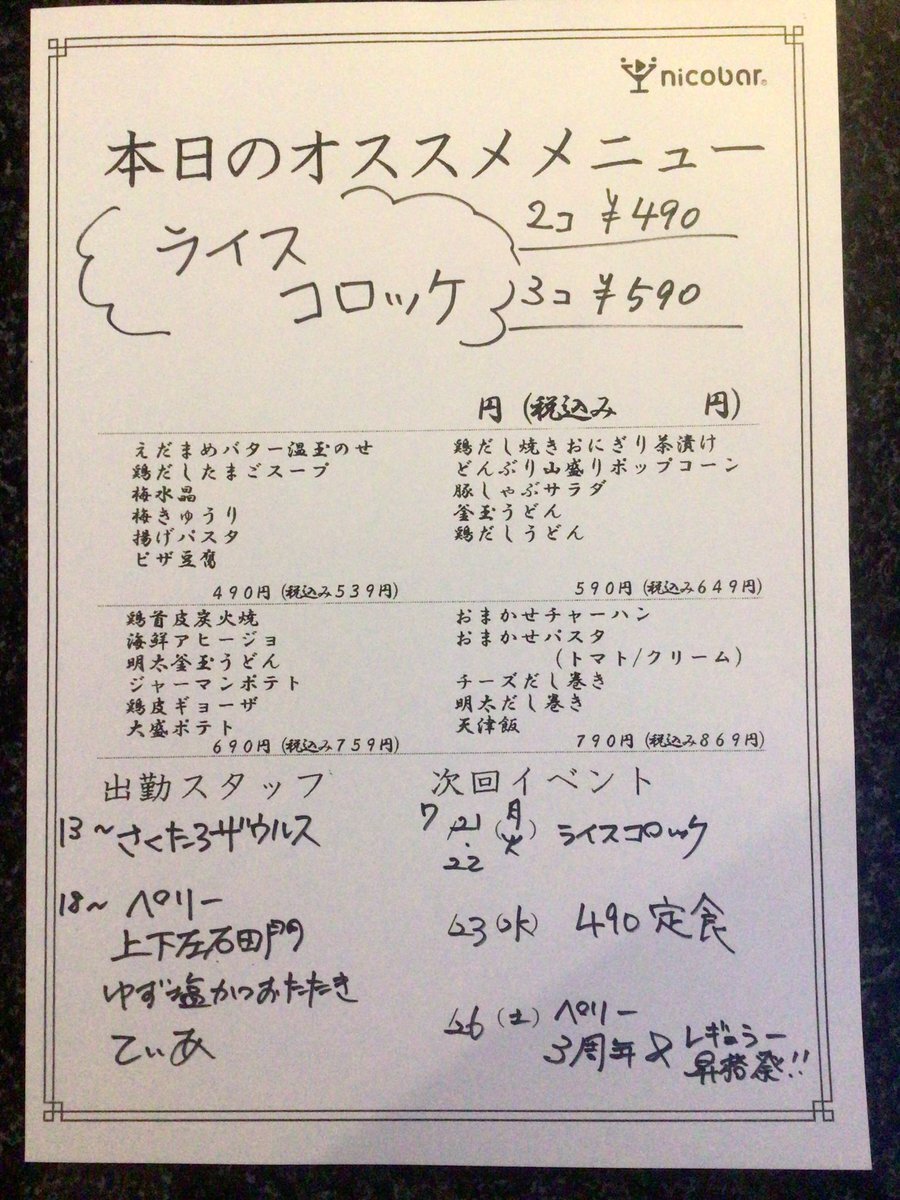 nicobar®
本日のオススメメニュー
ライス
コロッケ
2コ ¥490
3コ ¥590
円 (税込み 円)
えだまめバター温玉のせ
鶏だしたまごスープ
梅水晶
梅きゅうり
揚げパスタ
ピザ豆腐
490円 (税込み539円)
鶏だし焼きおにぎり茶漬け
どんぶり山盛りポップコーン
豚しゃぶサラダ
釜玉うどん
鶏だしうどん
590円 (税込み649円)
鶏首皮炭火焼
海鮮アヒージョ
明太釜玉うどん
ジャーマンポテト
鶏皮ギョーザ
大盛ポテト
690円 (税込み759円)
おまかせチャーハン
おまかせパスタ
(トマト/クリーム)
チーズだし巻き
明太だし巻き
天津飯
790円 (税込み869円)
出勤スタッフ
13~ さくたろザウルス
18~ ペリー
上下左石田門
ゆず塩かつおたたき
てぃあ
次回イベント
7/21 (月
.22 火) ライスコロッケ
/23 (水) 490定食
/26 (土) ペリー
3周年 & レギュラー
昇格祭!!